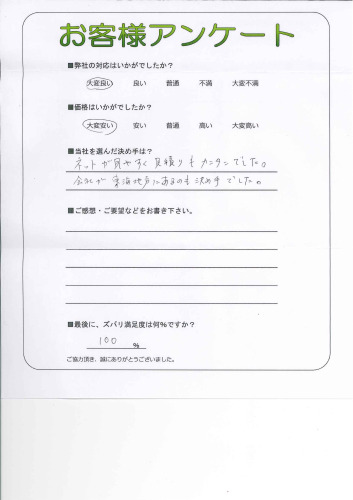 お客様アンケート
■弊社の対応はいかがでしたか？
大変良い 良い 普通 不満 大変不満
■価格はいかがでしたか？
大変安い 安い 普通 高い 大変高い
■当社を選んだ決め手は？
ネットが見やすく見積りもカンタンでした。
会社が東海地方にあるのも決め手でした。
■ご感想・ご要望などをお書き下さい。
■最後に、ズバリ満足度は何％ですか？
100 ％
ご協力頂き、誠にありがとうございました。